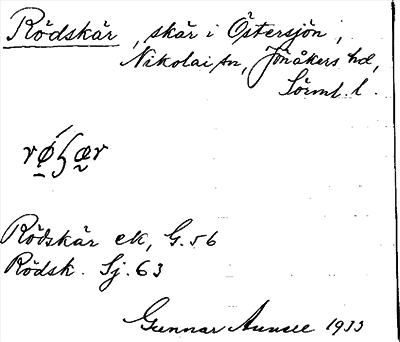 Rödskär, skär i Östersjön,
Nikolai sn, Jönåkers hd,
Sörml. l.
rǿ̠ʒær
Rödskär ek, G. 56
Rödsk. Sj. 63
Gunnar 1933